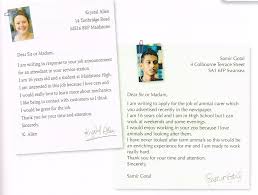 Krystal Allen
14 Tonbridge Road
ME16 8FP Maidstone
Dear Sir or Madam,
I am writing in response to your job announcement
for an attendant in your service station.
I am 16 years old and a student at Maidstone High.
I am interested in this job because I love cars and
would love to learn more about mechanics.
I like being in contact with customers so I think I
would be great for the job.
Thank you for your time and attention.
Sincerely,
K. Allen
Samir Gotal
4 Collbourne Terrace Street
SA1 6FP Swansea
Dear Sir or Madam,
I am writing to apply for the job of animal carer which you
advertised recently in the newspaper.
I am 16 years old. I am in High School but I can
work at weekends and some evenings.
I would enjoy working in your zoo because I love
animals and looking after them.
I have never looked after farm animals so this would be
an enriching experience for me and I am ready to work
really hard.
Thank you for your time and attention.
Sincerely,
Samir Gotal